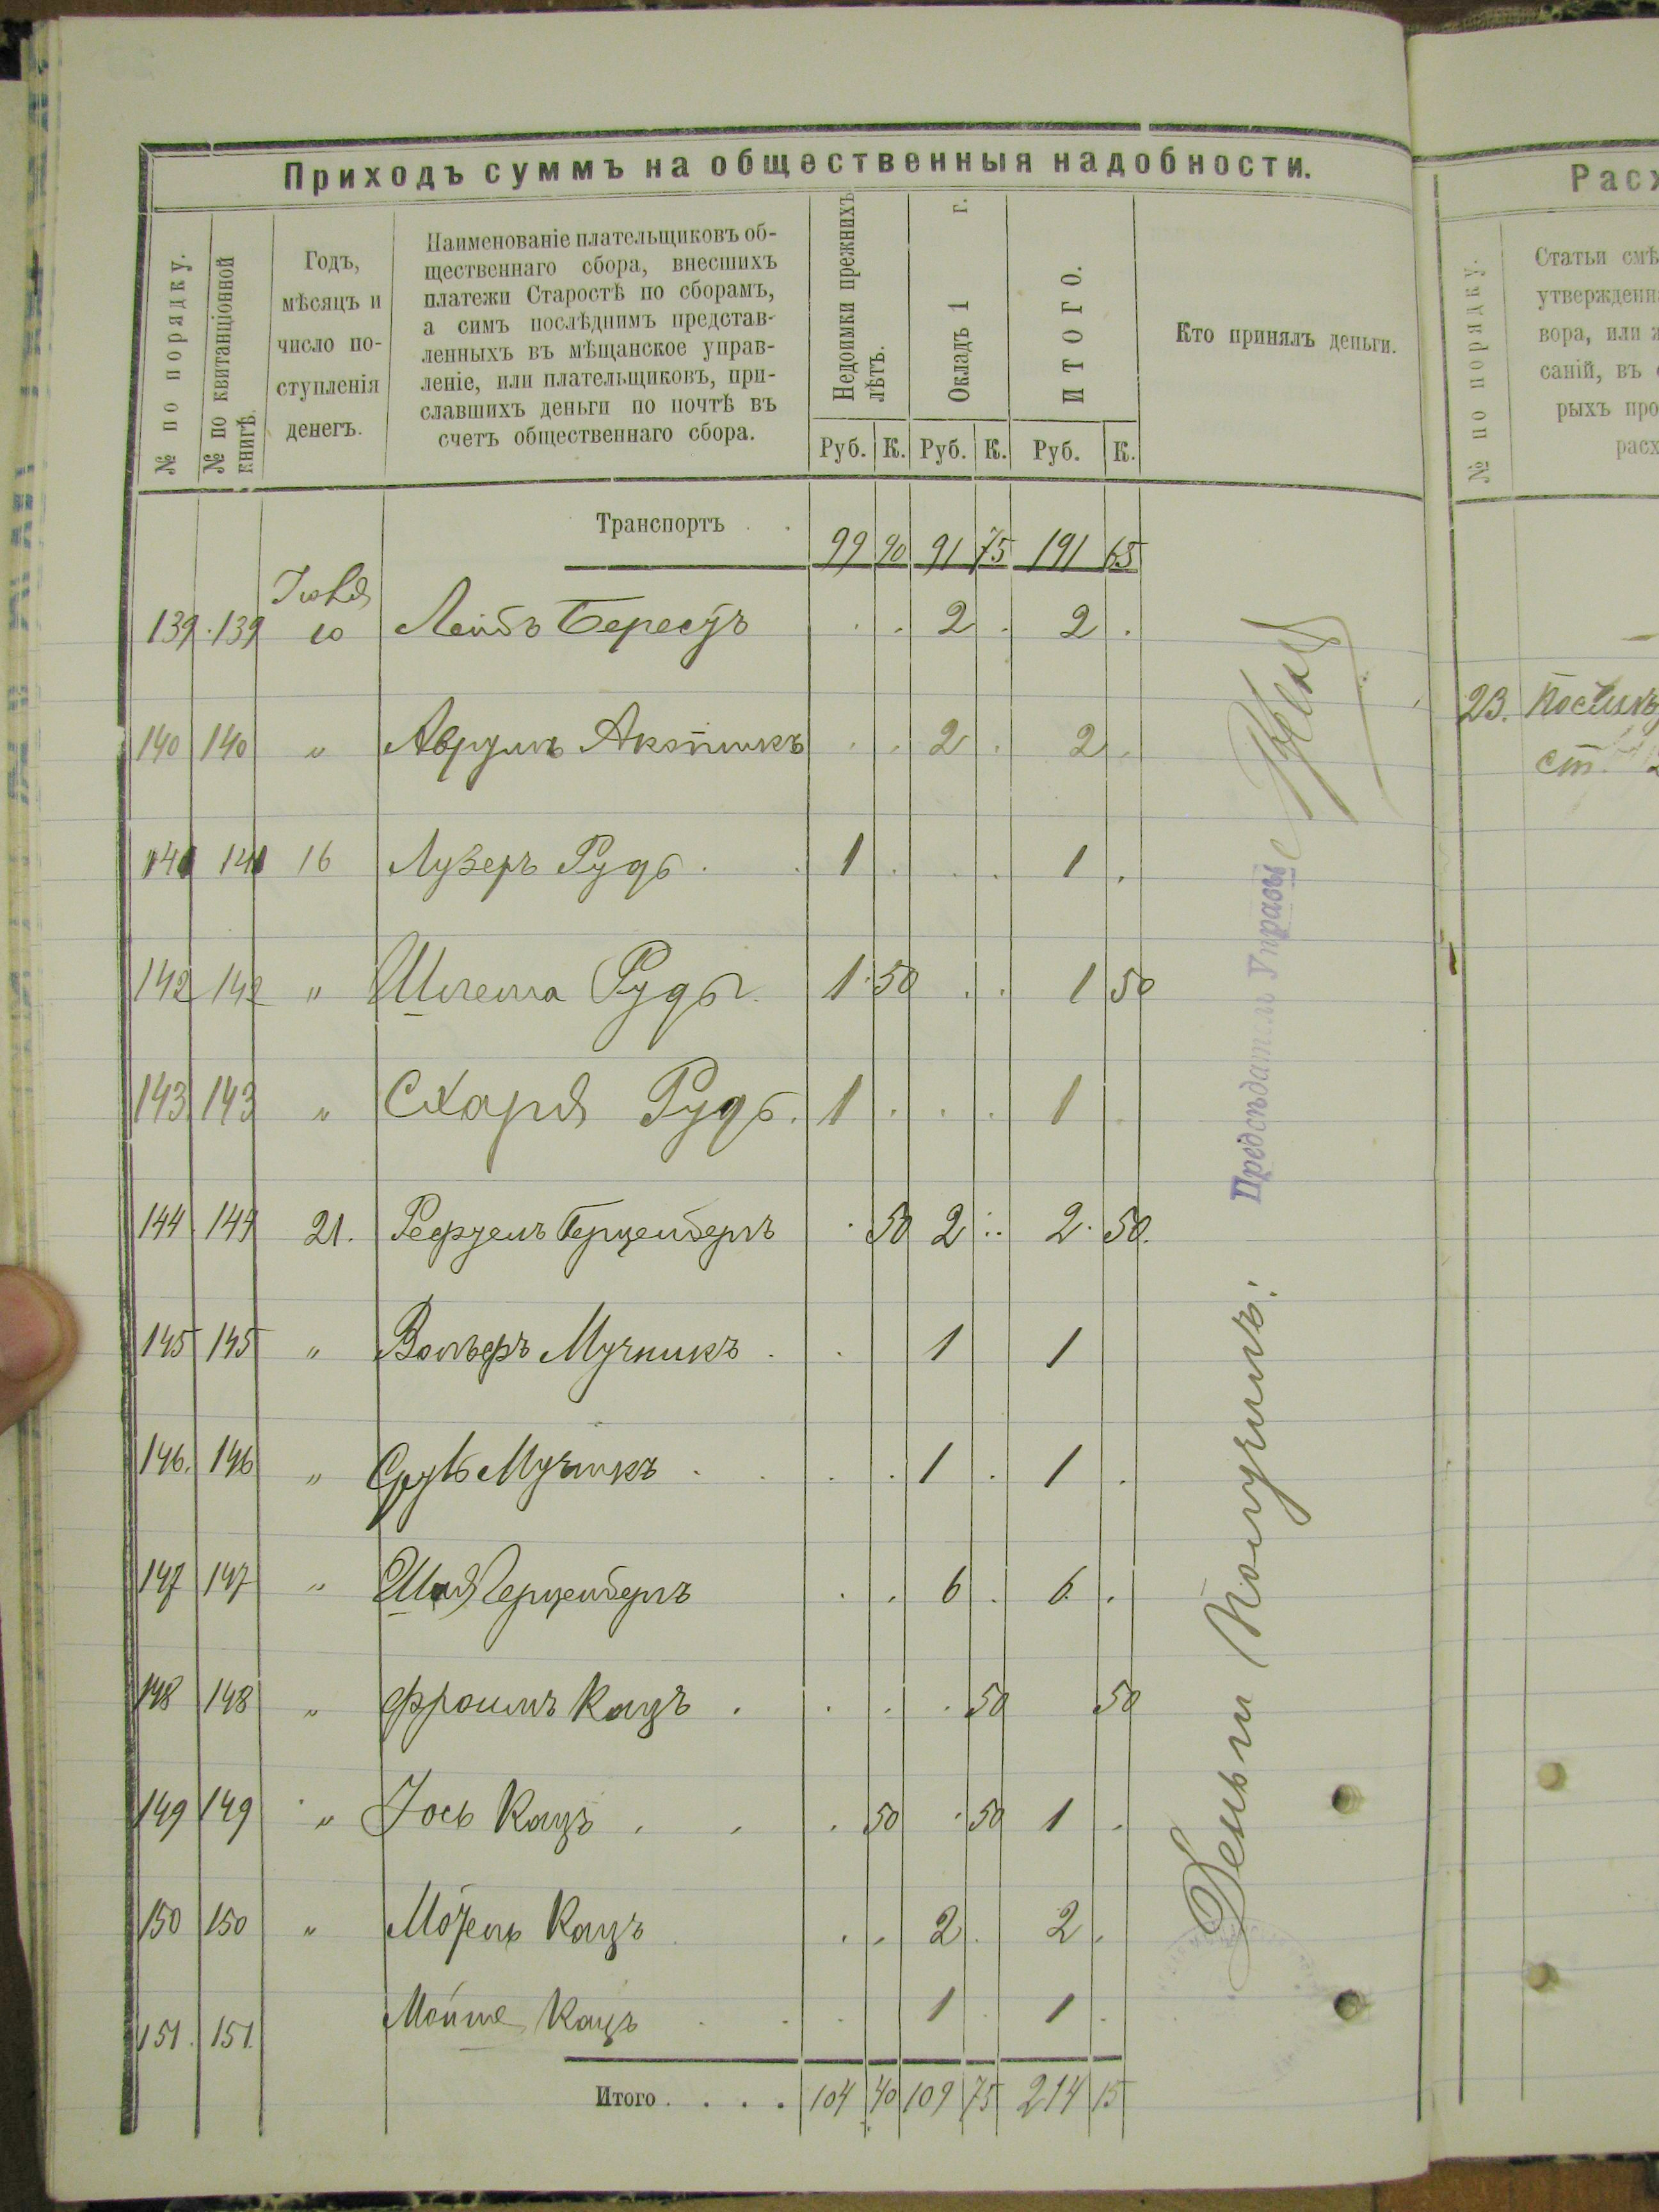 Приходъ суммъ на общественныя надобности.
№ по порядку.
№ по квитанціонной книгѣ.
Годъ,
мѣсяцъ и
число по-
ступленія
денегъ.
Наименованіе плательщиковъ об-
щественнаго сбора, внесшихъ
платежи Старостѣ по сборамъ,
а симъ послѣднимъ представ-
ленныхъ въ мѣщанское управ-
леніе, или плательщиковъ, при-
славшихъ деньги по почтѣ въ
счетъ общественнаго сбора.
Недоимки прежнихъ
лѣтъ.
Окладъ 1 г.
ИТОГО.
Кто принялъ деньги.
Руб. К. Руб. К. Руб. К.
Транспортъ . . 99 90 91 75 191 65
Іюля
139 139 10 Лейбъ 2 2
140 140 " Аврумъ 2 2
141 141 16 Лузеръ Рудь 1 1
142 142 " Шлема Рудь 1 50 1 50
143 143 " Схаря Рудь 1 1
144 144 21. Рефуелъ Герценбергъ 50 2 2 50
145 145 " Вольфъ Мучникъ 1 1
146. 146 " Сруль Мучникъ 1 1
147 147 " Шая Герценбергъ 6 6
148 148 " Фроимъ Кацъ 50 50
149 149 " Іось Кацъ 50 50 1
150 150 " Мотель Кацъ 2 2
151. 151. Мойше Кацъ 1 1
Итого . . . . 104 40 109 75 214 15
Деньги получилъ:
Предсѣдатель Управы
Расх
№ по порядку.
Статьи смѣ
утвержденн
вора, или
саній, въ
рыхъ про
расх
23.
ст.